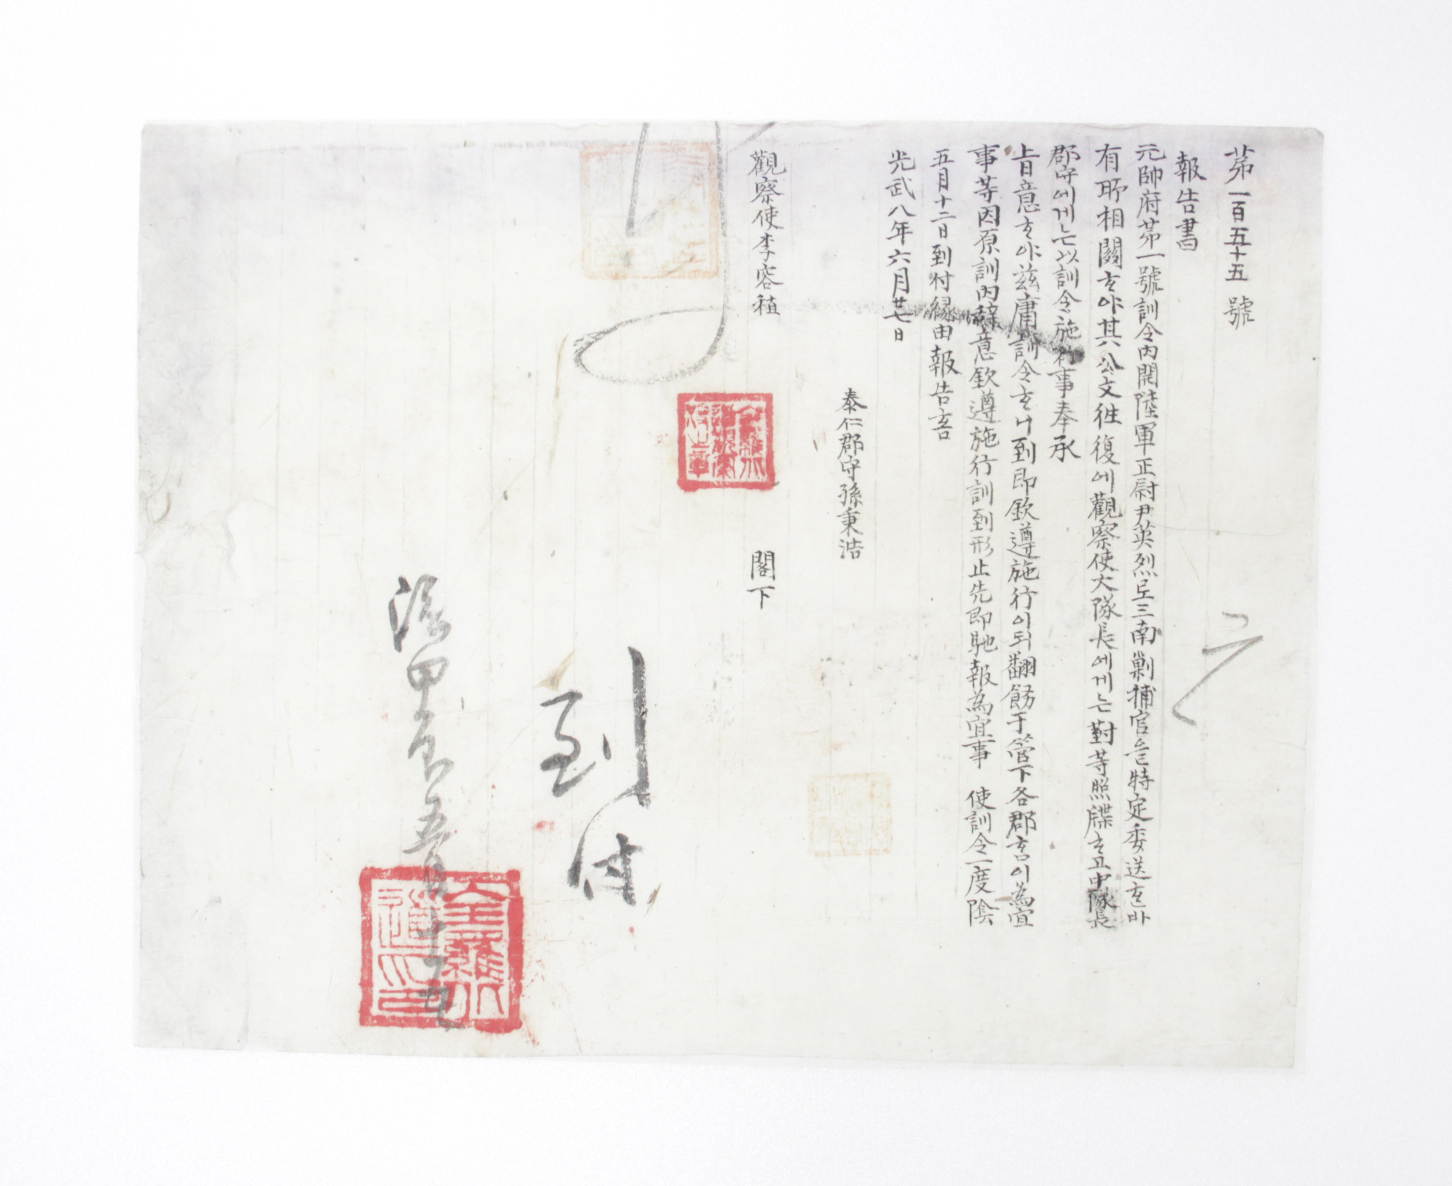 第一百五十五號
報告書
元帥府第一號訓令內開陸軍正尉尹英烈로三南剿捕官을特定委送ᄒᆞᆫ바
有所相關ᄒᆞ야其公文徃復에觀察使大隊長에게ᄂᆞᆫ對等照牒ᄒᆞ고中隊長
郡守에게ᄂᆞᆫ以訓令施行事奉承
旨意ᄒᆞ야玆庸訓令ᄒᆞ니到即欽遵施行이되翻飭于管下各郡홈이爲宜
事等因原訓內辭意欽遵施行訓到形止先即馳報爲宜事 使訓令一度陰
五月十二日到付緣由報告홈
光武八年六月廿七日
泰仁郡守孫秉浩
觀察使李容稙 閣下
到付
甲辰五月十五
全羅北道印